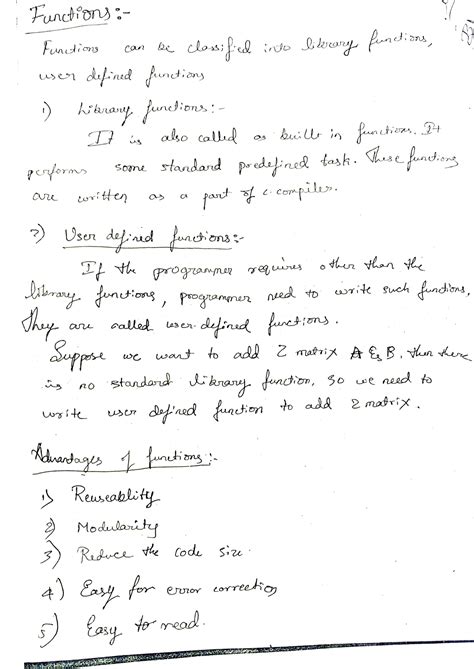 Functions:-
Functions can be classified into library functions,
user defined functions
1) Library functions:-
It is also called as built in functions. It
performs some standard predefined task. These functions
are written as a part of c. compiler.
2) User defined functions:-
If the programmer requires other than the
library functions, programmer need to write such functions,
They are called user-defined functions.
Suppose we want to add 2 matrix A & B, then there
is no standard library function, so we need to
write user defined function to add 2 matrix.
Advantages of functions:-
1) Reuseablity
2) Modularity
3) Reduce the code size.
4) Easy for error correction
5) Easy to read.